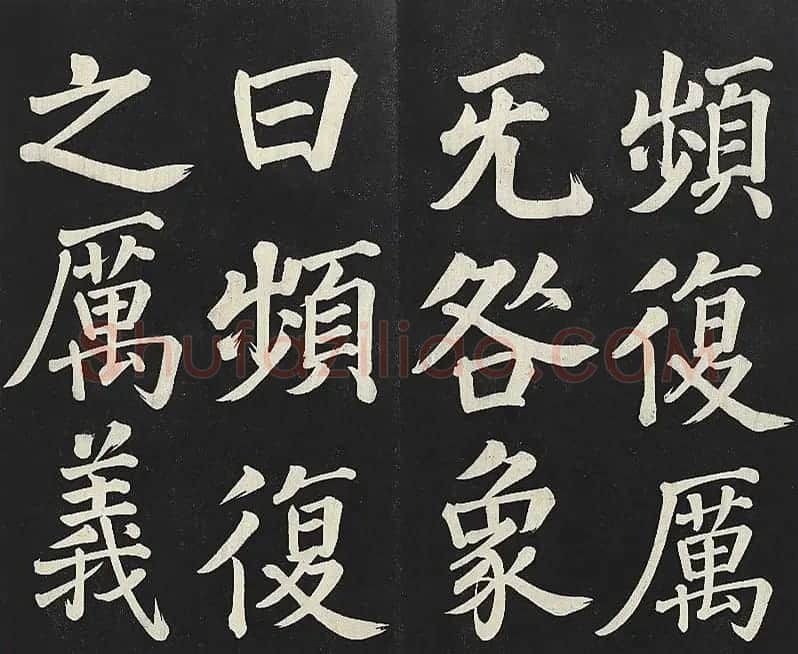 頻復厲
无咎象
曰頻復
之厲義
Shufaziliao.COM